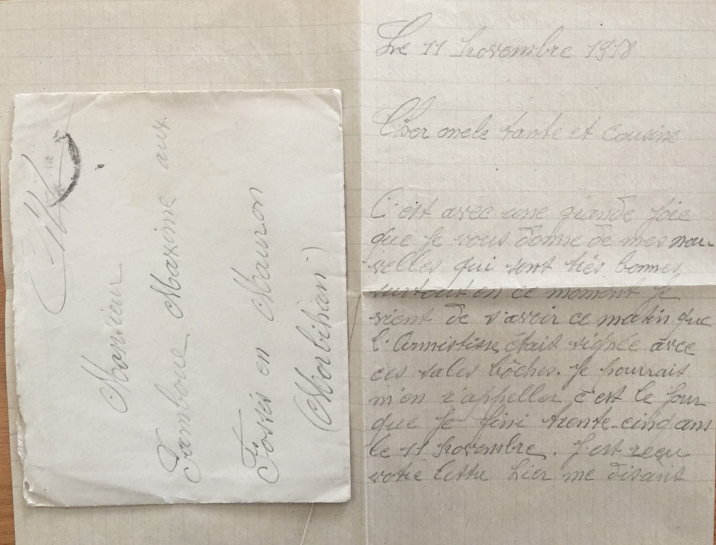 Le 11 novembre 1918
Cher oncle tante et cousine
C'est avec une grande joie
que je vous donne de mes nou-
velles qui sont très bonnes
surtout en ce moment je
vient de s'avoir ce matin que
l'Armistisse était signée avec
ces sales bôches. je pourrait
m'en r'appeller c'est le jour
que je fini trente-cinq ans
le 11 novembre. J'est reçu
votre lettre hier me disant
Monsieur
Jamboue Maxime aux
Fossés en Mauron
(Morbihan)